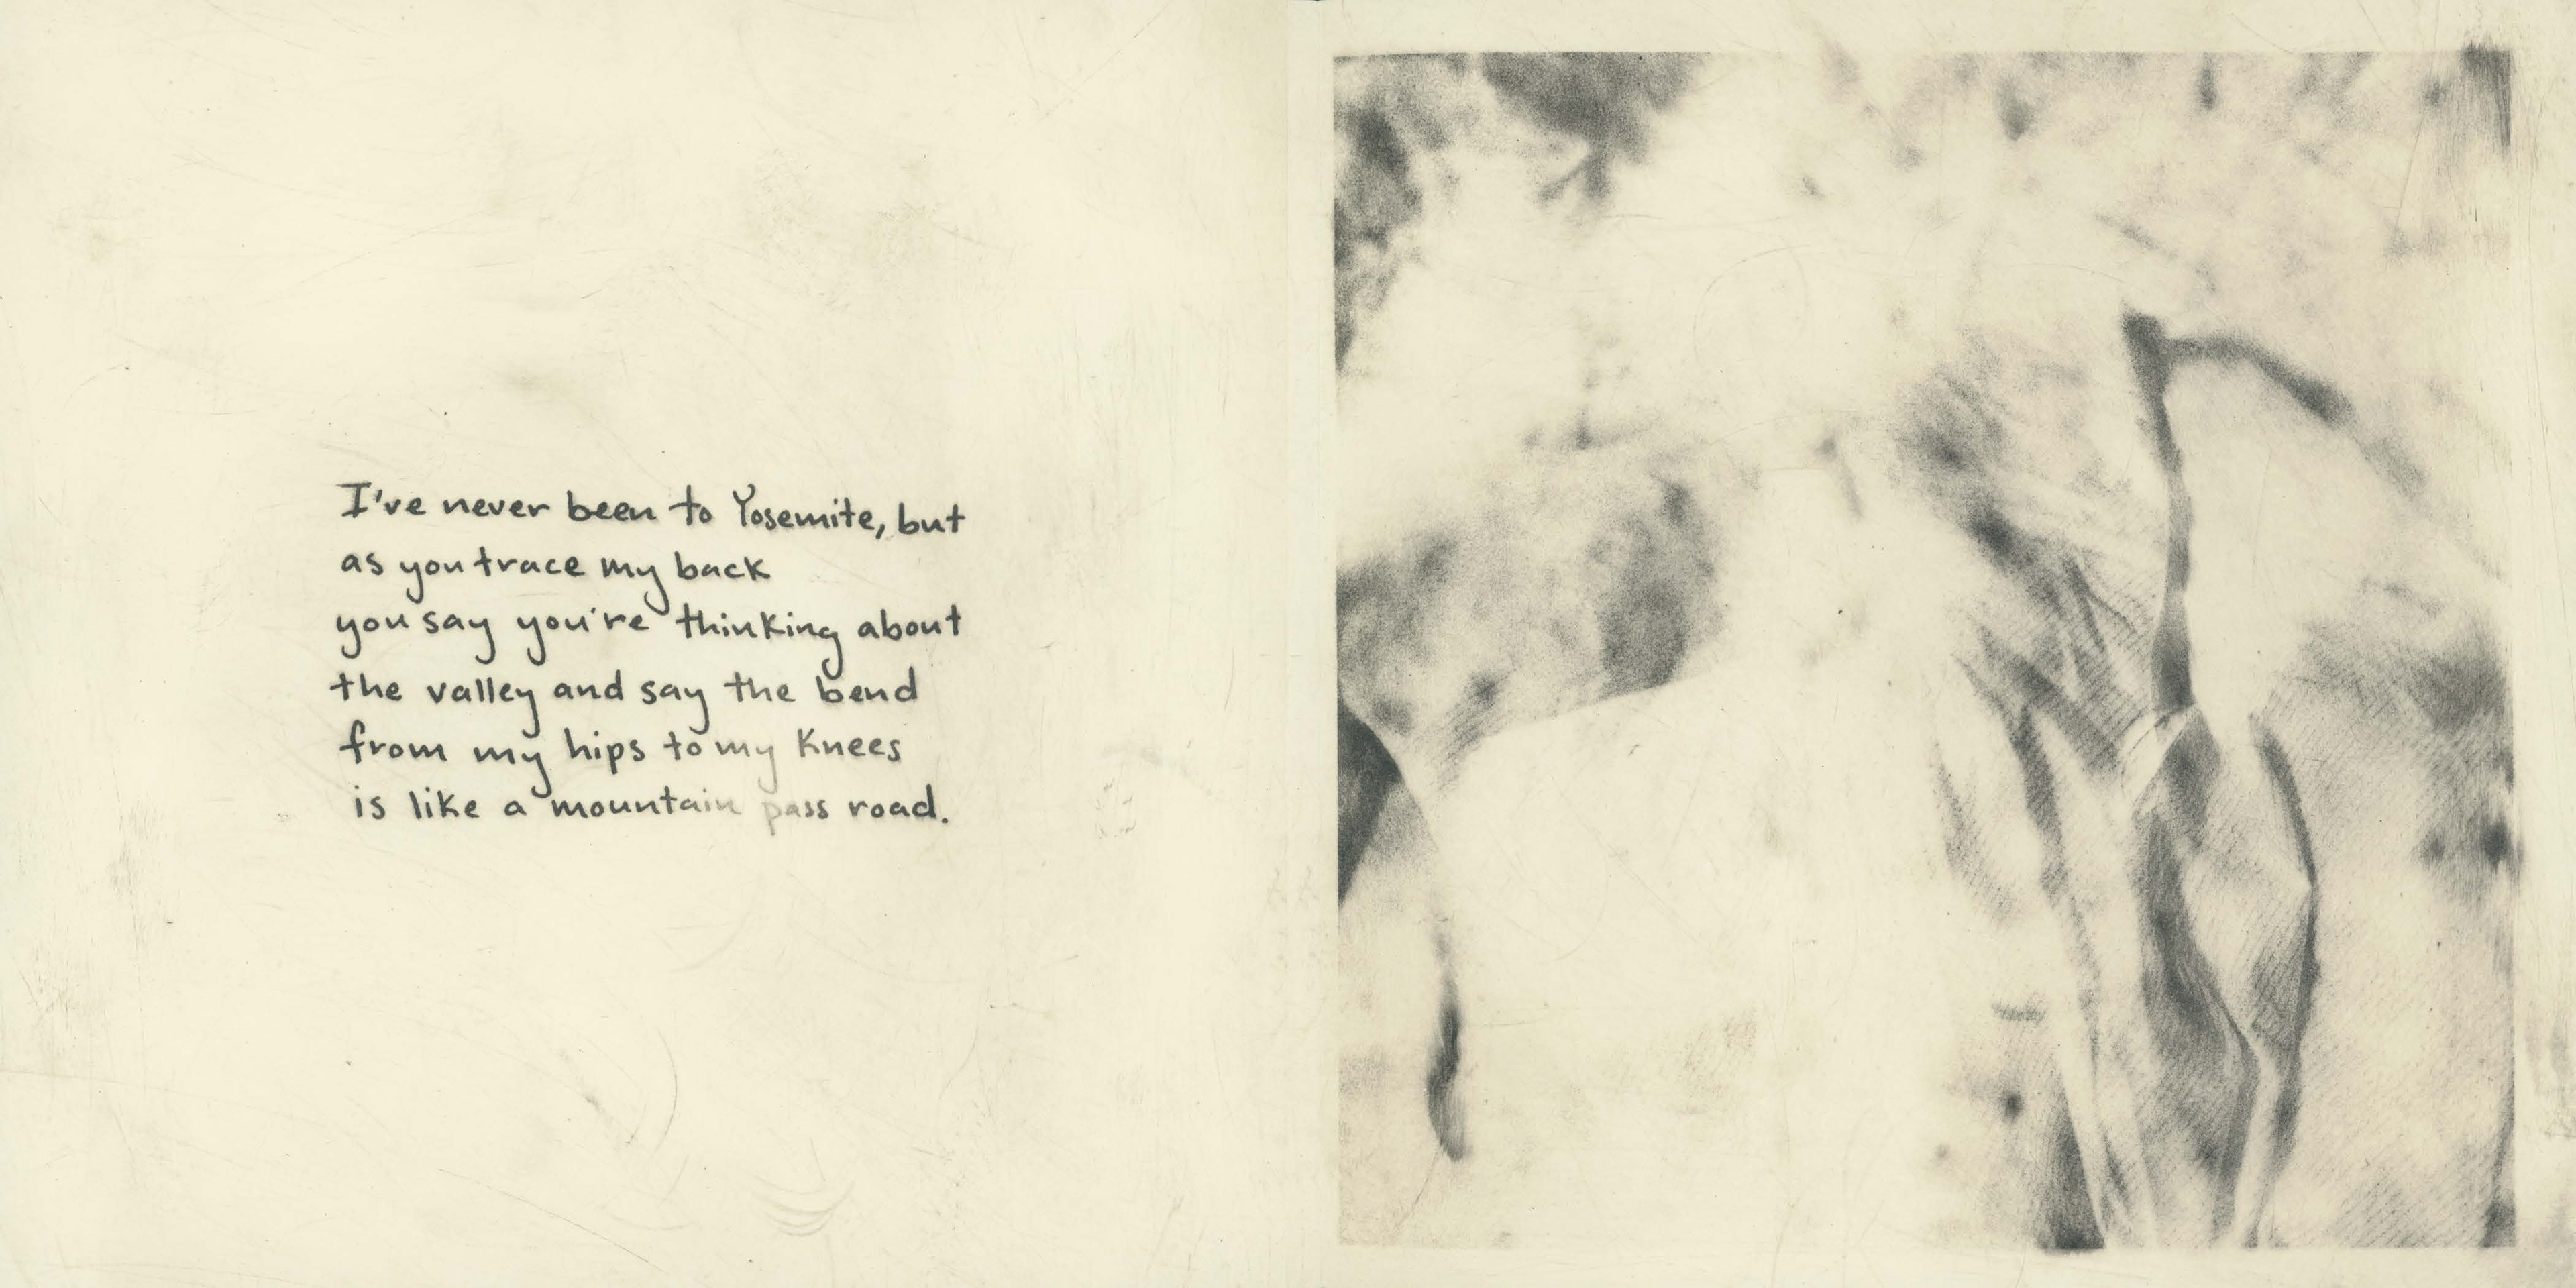 I've never been to Yosemite, but
as you trace my back
you say you're thinking about
the valley and say the bend
from my hips to my knees
is like a mountain pass road.